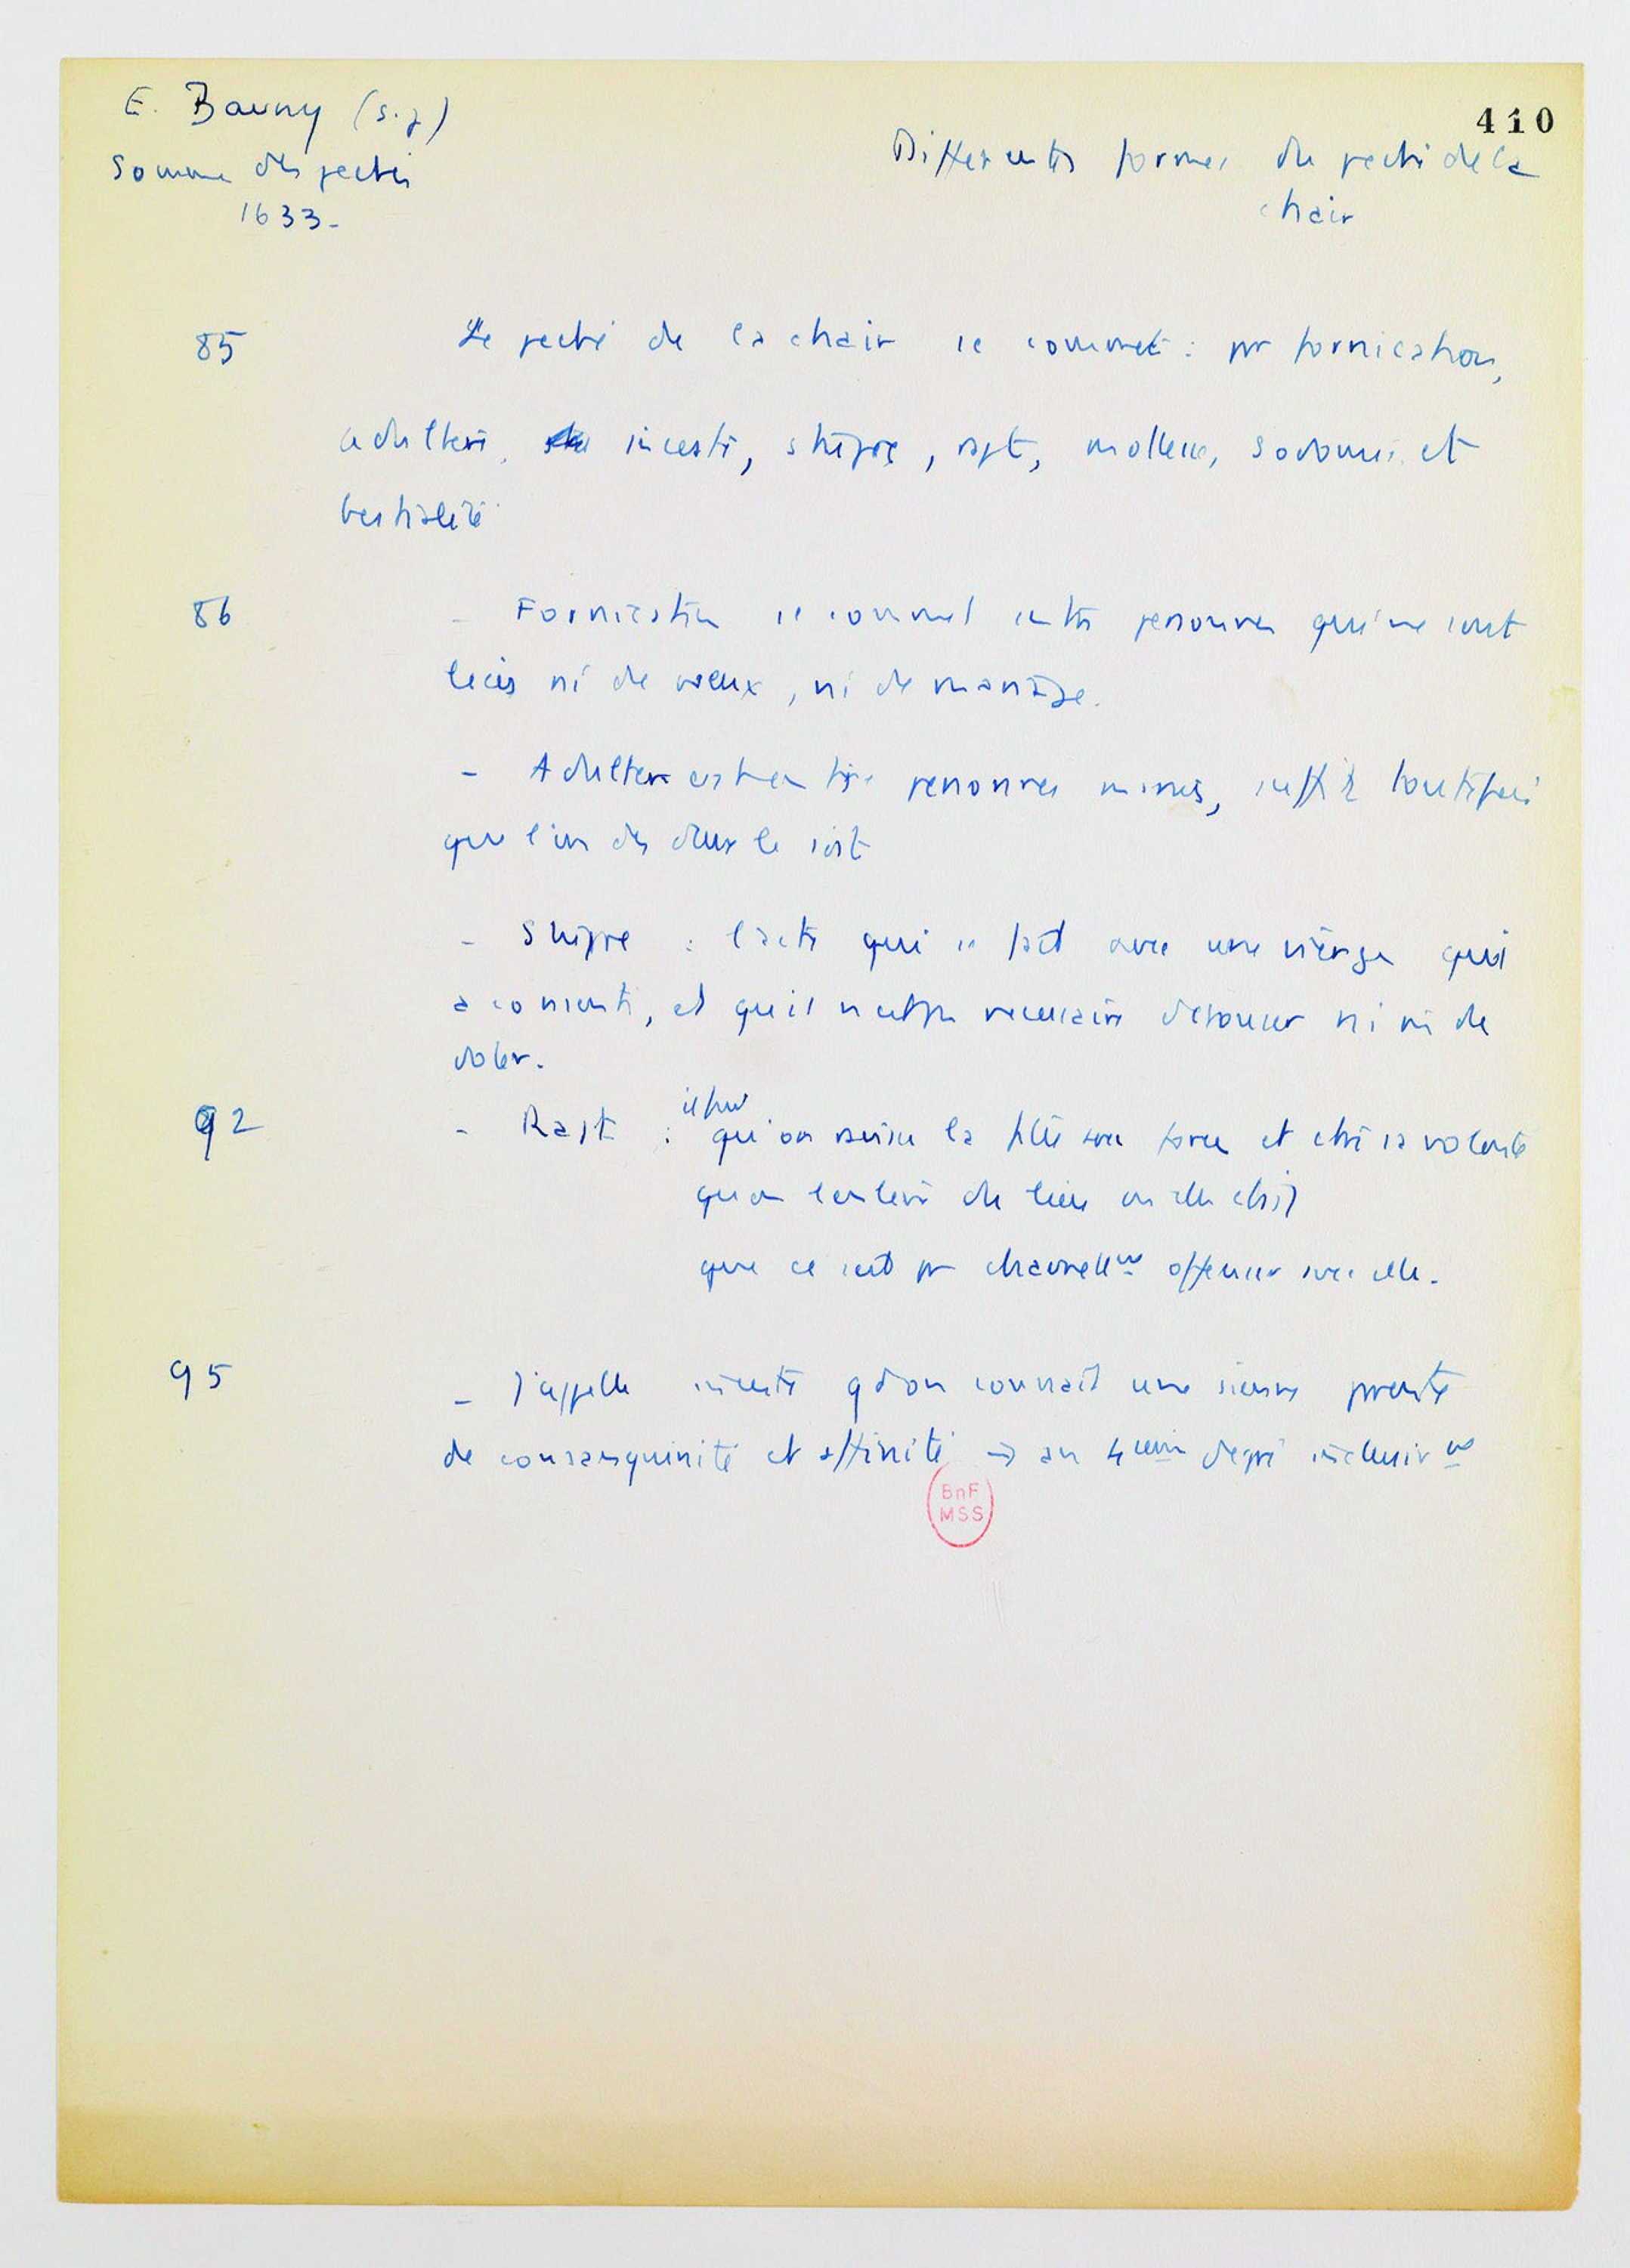 410
E. Bauny (s.j)
Somme des péchés
1633-
Différentes formes du péché de la
chair
85
Le péché de la chair se commet : pr fornication,
adultère, inceste, stupre, rapt, mollesse, sodomie et
bestialité
86
- Fornication se commet entre personnes qui ne sont
liées ni de vœux, ni de mariage.
- Adultère est entre personnes mariées, suffit toutefois
que l'un des deux le soit
- Stupre : l'acte qui se fait avec une vierge qui
a consenti, et qu'il n'est pas nécessaire ni de
92
- Rapt : il faut qu'on ravisse la fille par force et ctre sa volonté
qu'on l'enlève du lieu où elle était
que ce soit pr charnellement offenser avec elle.
95
- J'appelle inceste qd on connaît une sienne parente
de consanguinité et affinité → au 4ième degré inclusivt
BnF
MSS